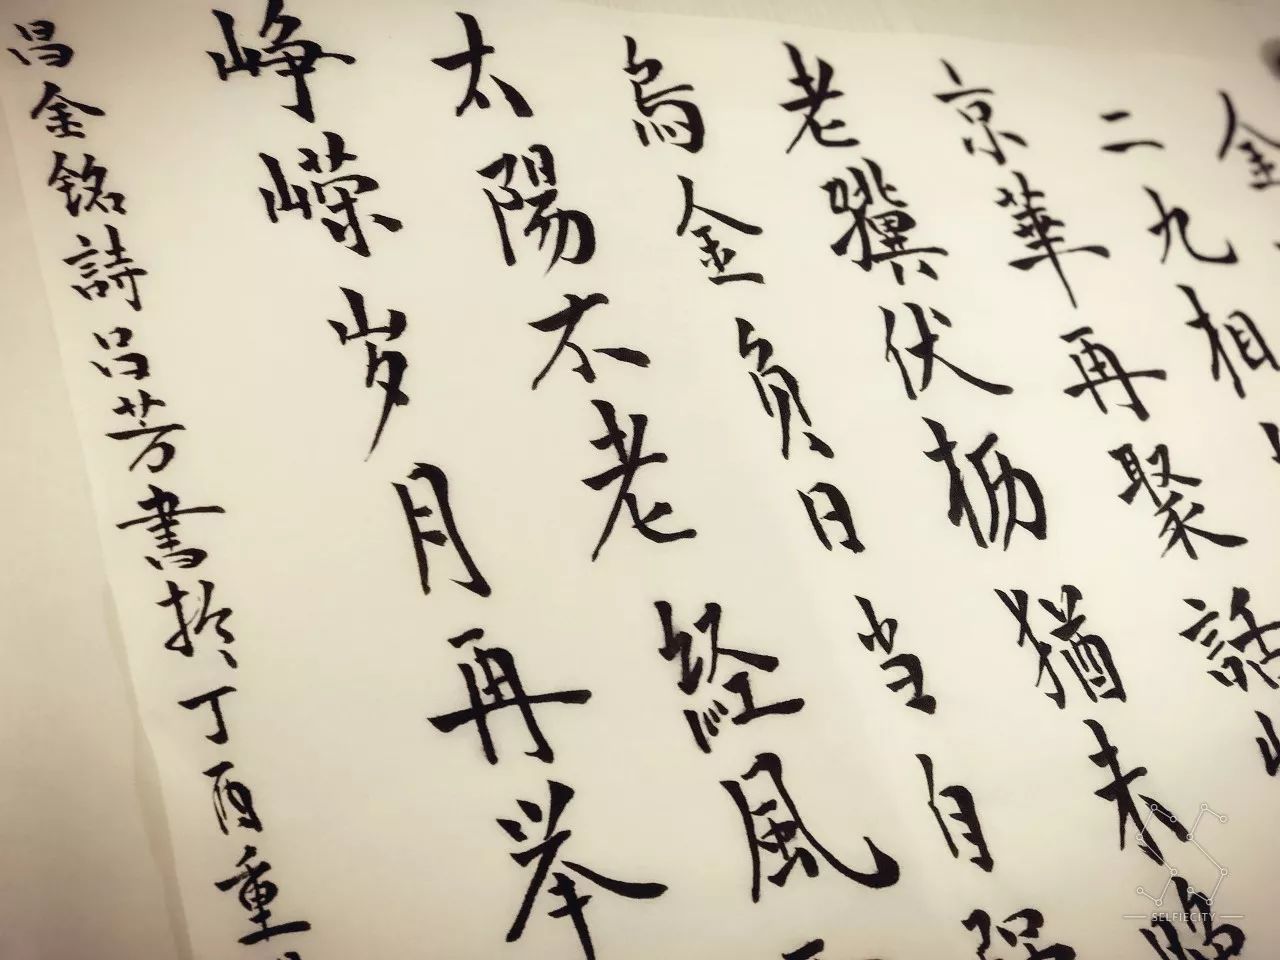 金
二九相
京華再聚話
老驥伏枥猶未
烏金負日当自强
太陽不老經風
峥嶸岁月再举
昌金銘詩吕芳書於丁酉重
SELFIECITY